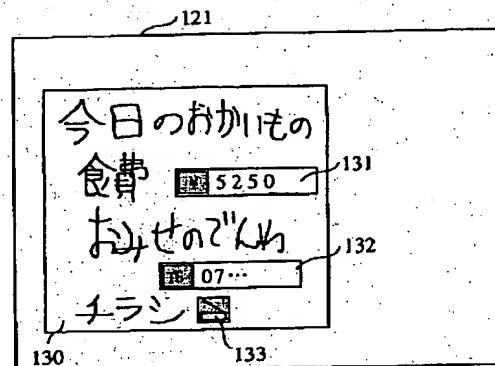 121
今日のおかいもの
食費 ¥ 5250 131
おみせのでんわ
07… 132
チラシ
130 133